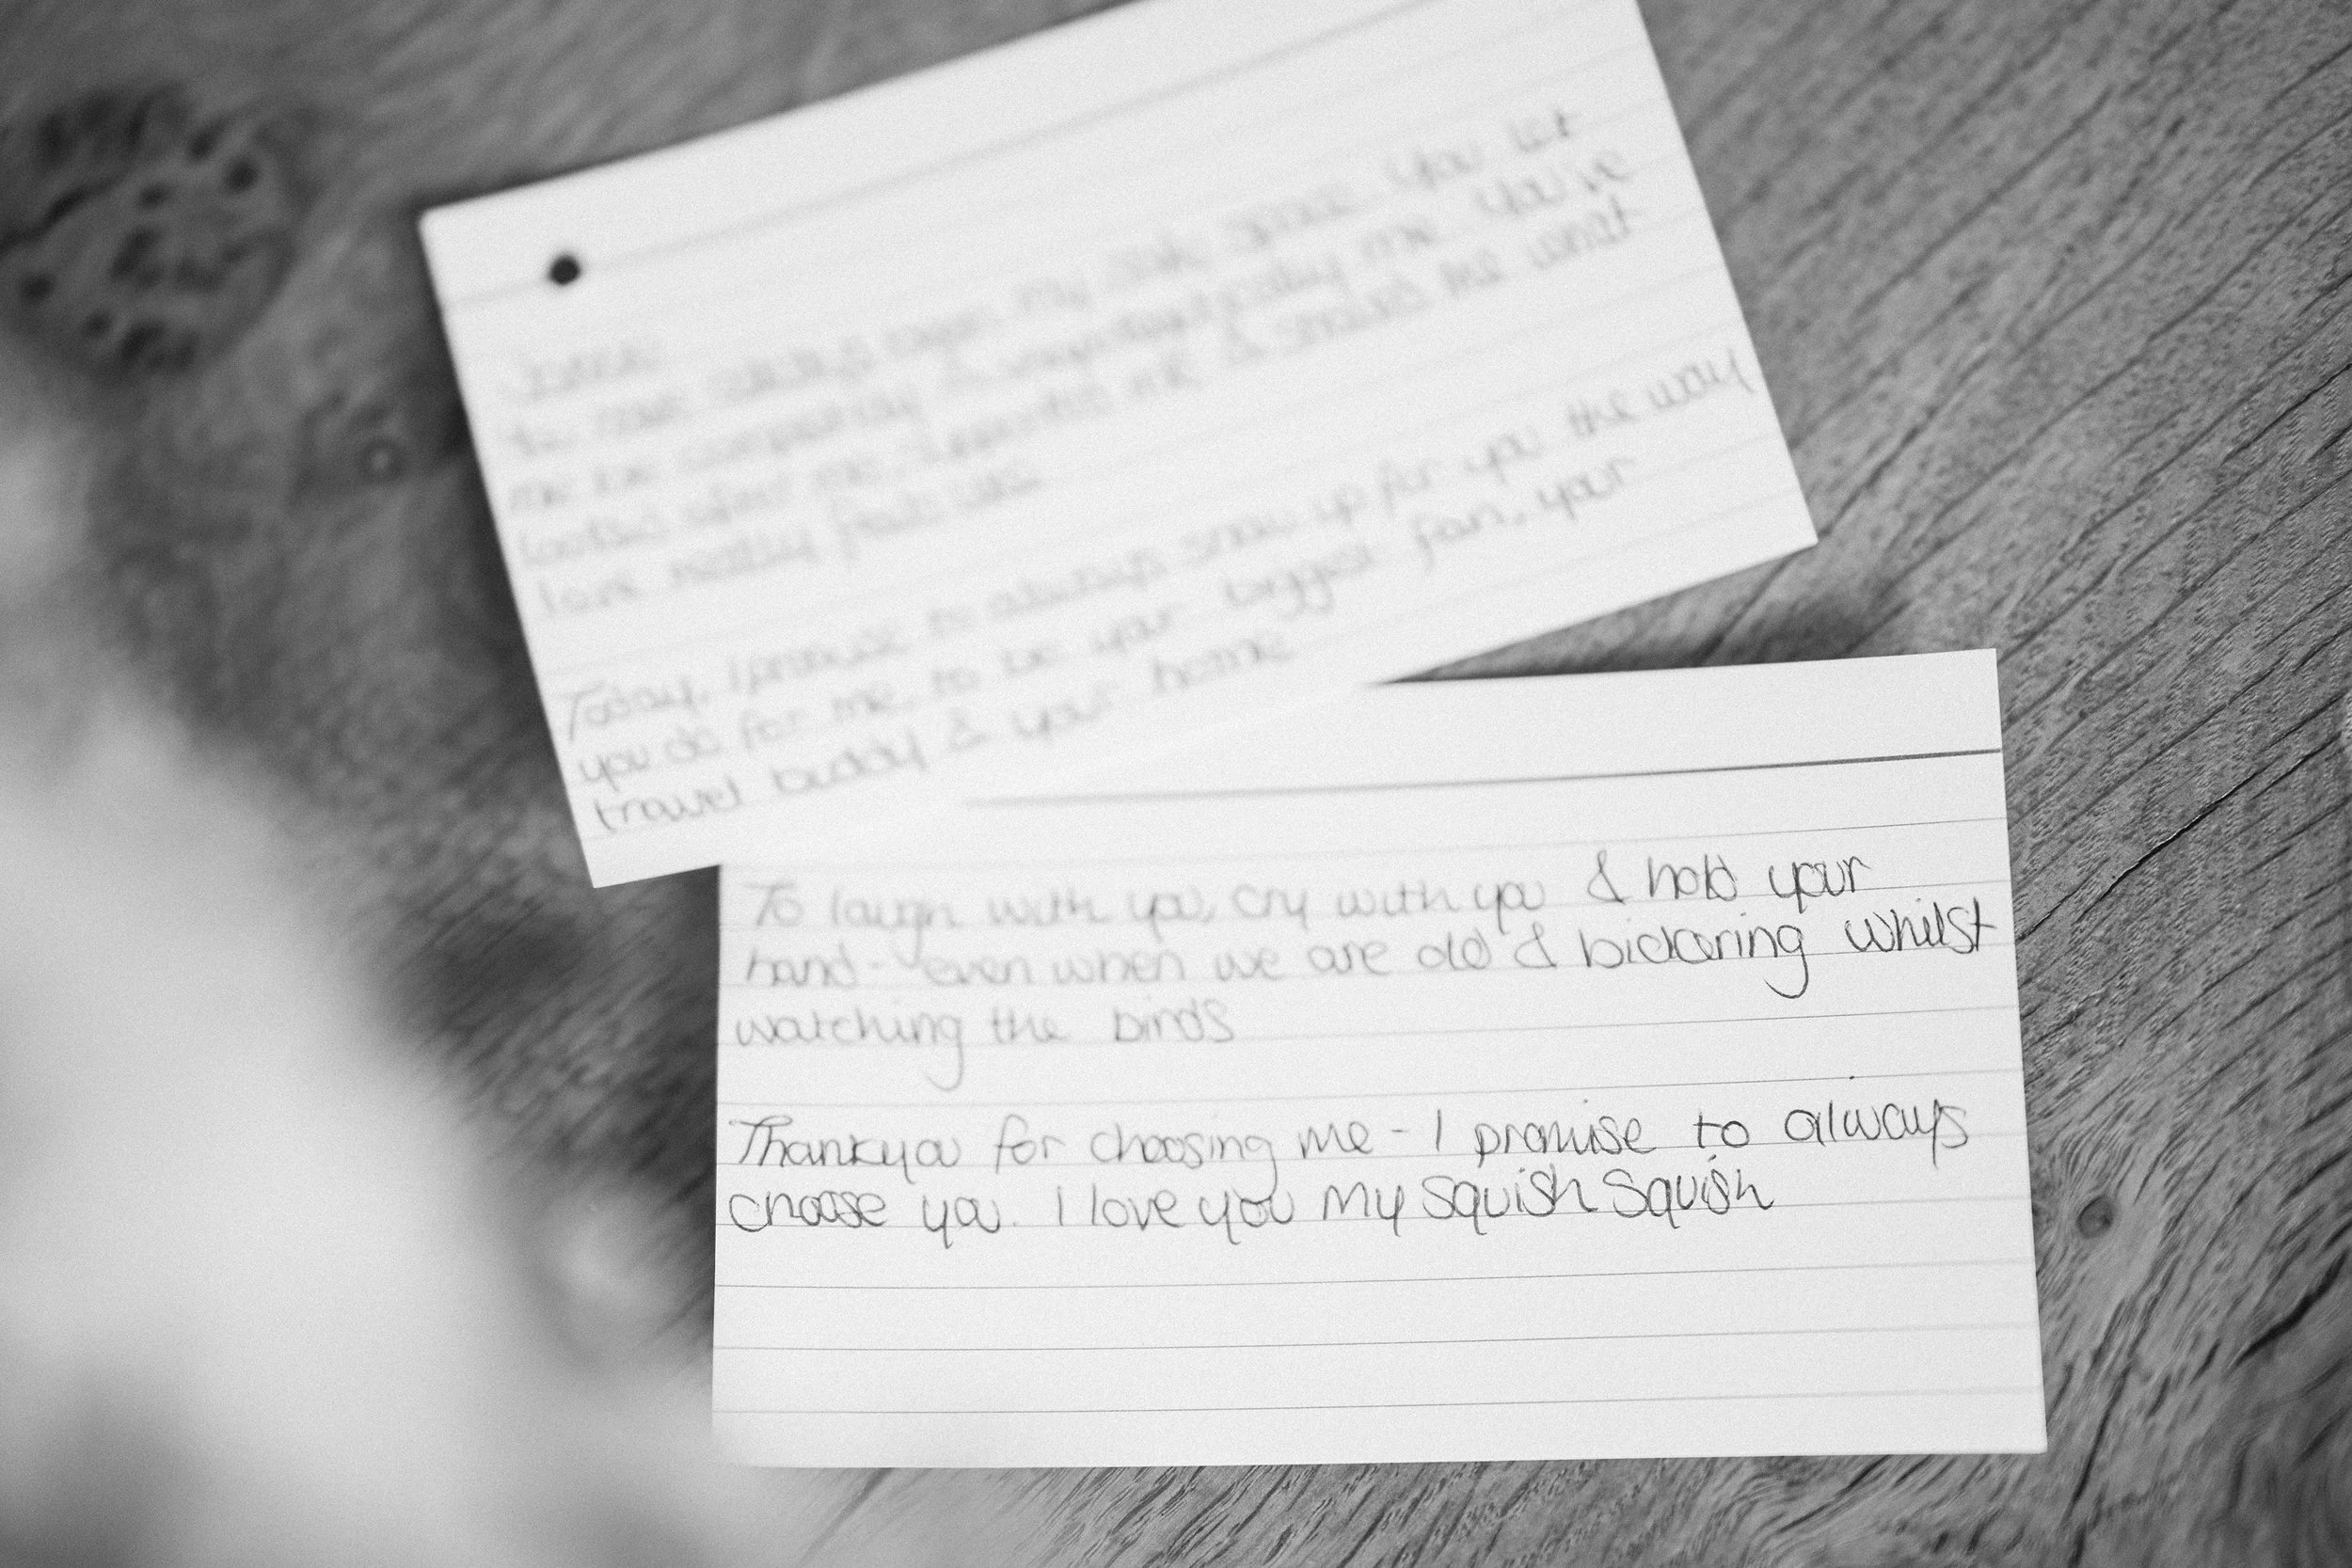 my safe space. You let
me be completely & unapologetically me. You've
looked after me, supported me & shown me what
love really feels like
Today, I promise to always show up for you the way
you do for me, to be your biggest fan, your
travel buddy & your home
To laugh with you, cry with you & hold your
hand - even when we are old & bickering whilst
watching the birds
Thankyou for choosing me - I promise to always
choose you. I love you my Squish Squish